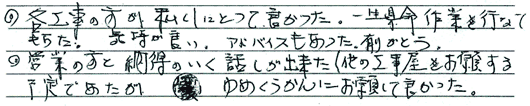 ① 各工事の方が私くしにとって良かった。一生県命作業を行なって
もらた。気持が言い。アドバイスもあった。有がとう。
② 営業の方と納得のいく話しが出来た(他の工事屋をお願する
予定であたが ゆめくうかんにお願して良かった。